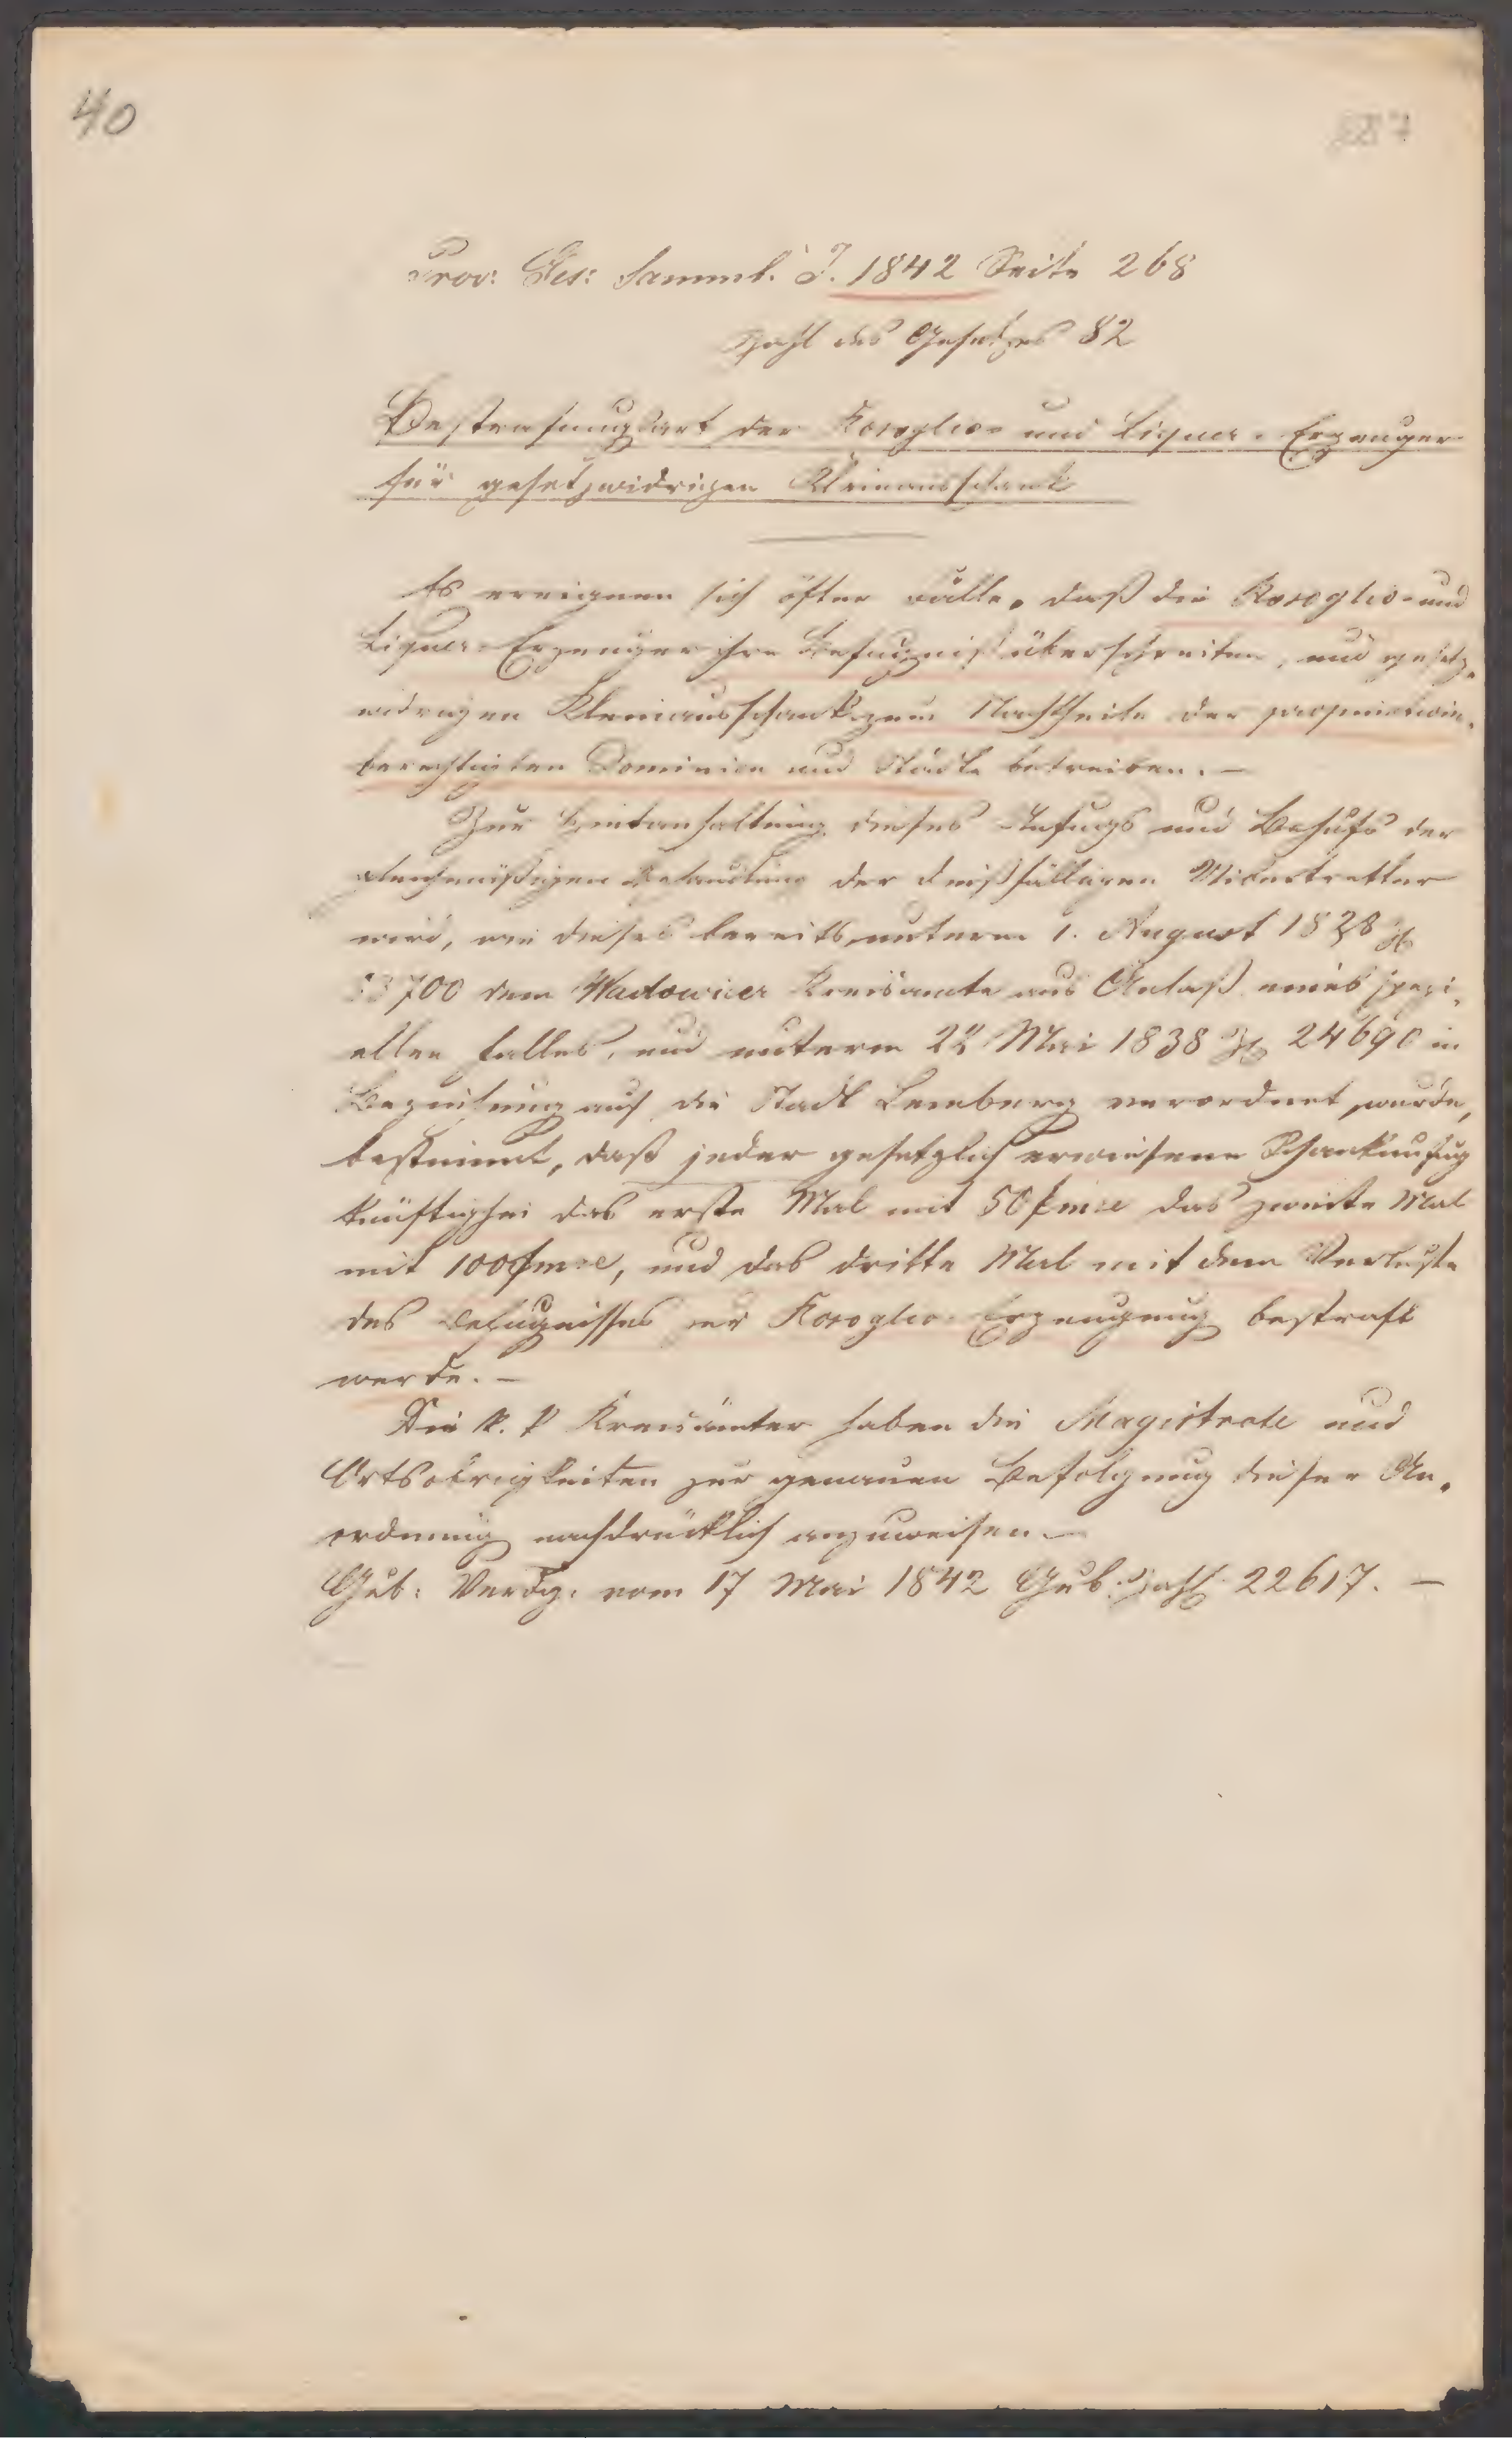 40
Prov: Ges: Samml. J. 1842 Seite 268
Zahl des Gesetzes 82
Bestrafungsart der Rosoglio- und Liqueur-Erzeuger
für gesetzwidrigen Kleinausschank
Es ereignen sich öfter Fälle, daß die Rosoglio- und
Liqueur-Erzeuger ihre Befugniß überschreiten, und gesetz-
widrigen Kleinausschank zum Nachtheile der propinations-
berechtigten Dominien und Städte betreiben. –
Zur Hintanhaltung dieses Unfugs und Behufs der
gleichmäßigen Behandlung der dießfälligen Uibertretter
wird, wie dieses bereits unterm 1. August 1828 Zl
53700 dem Wadowicer Kreisamte aus Anlaß eines spezi-
ellen Falles, und unterm 22 Mai 1838 Zl 24690 in
Beziehung auf die Stadt Lemberg verordnet wurde,
bestimmt, daß jeder gesetzlich erwiesene Schankunfug
künftighin das erste Mal mit 50 f m:e das zweite Mal
mit 100 f m:e, und das dritte Mal mit dem Verluste
des Befugnisses zur Rosoglio-Erzeugung bestraft
werde. –
Die k. k Kreisämter haben die Magistrate und
Ortsobrigkeiten zur genauen Befolgung dieser An-
ordnung nachdrücklich anzuweisen. –
Gub: Verdg: vom 17 Mai 1842 Gub. Zahl 22617. –